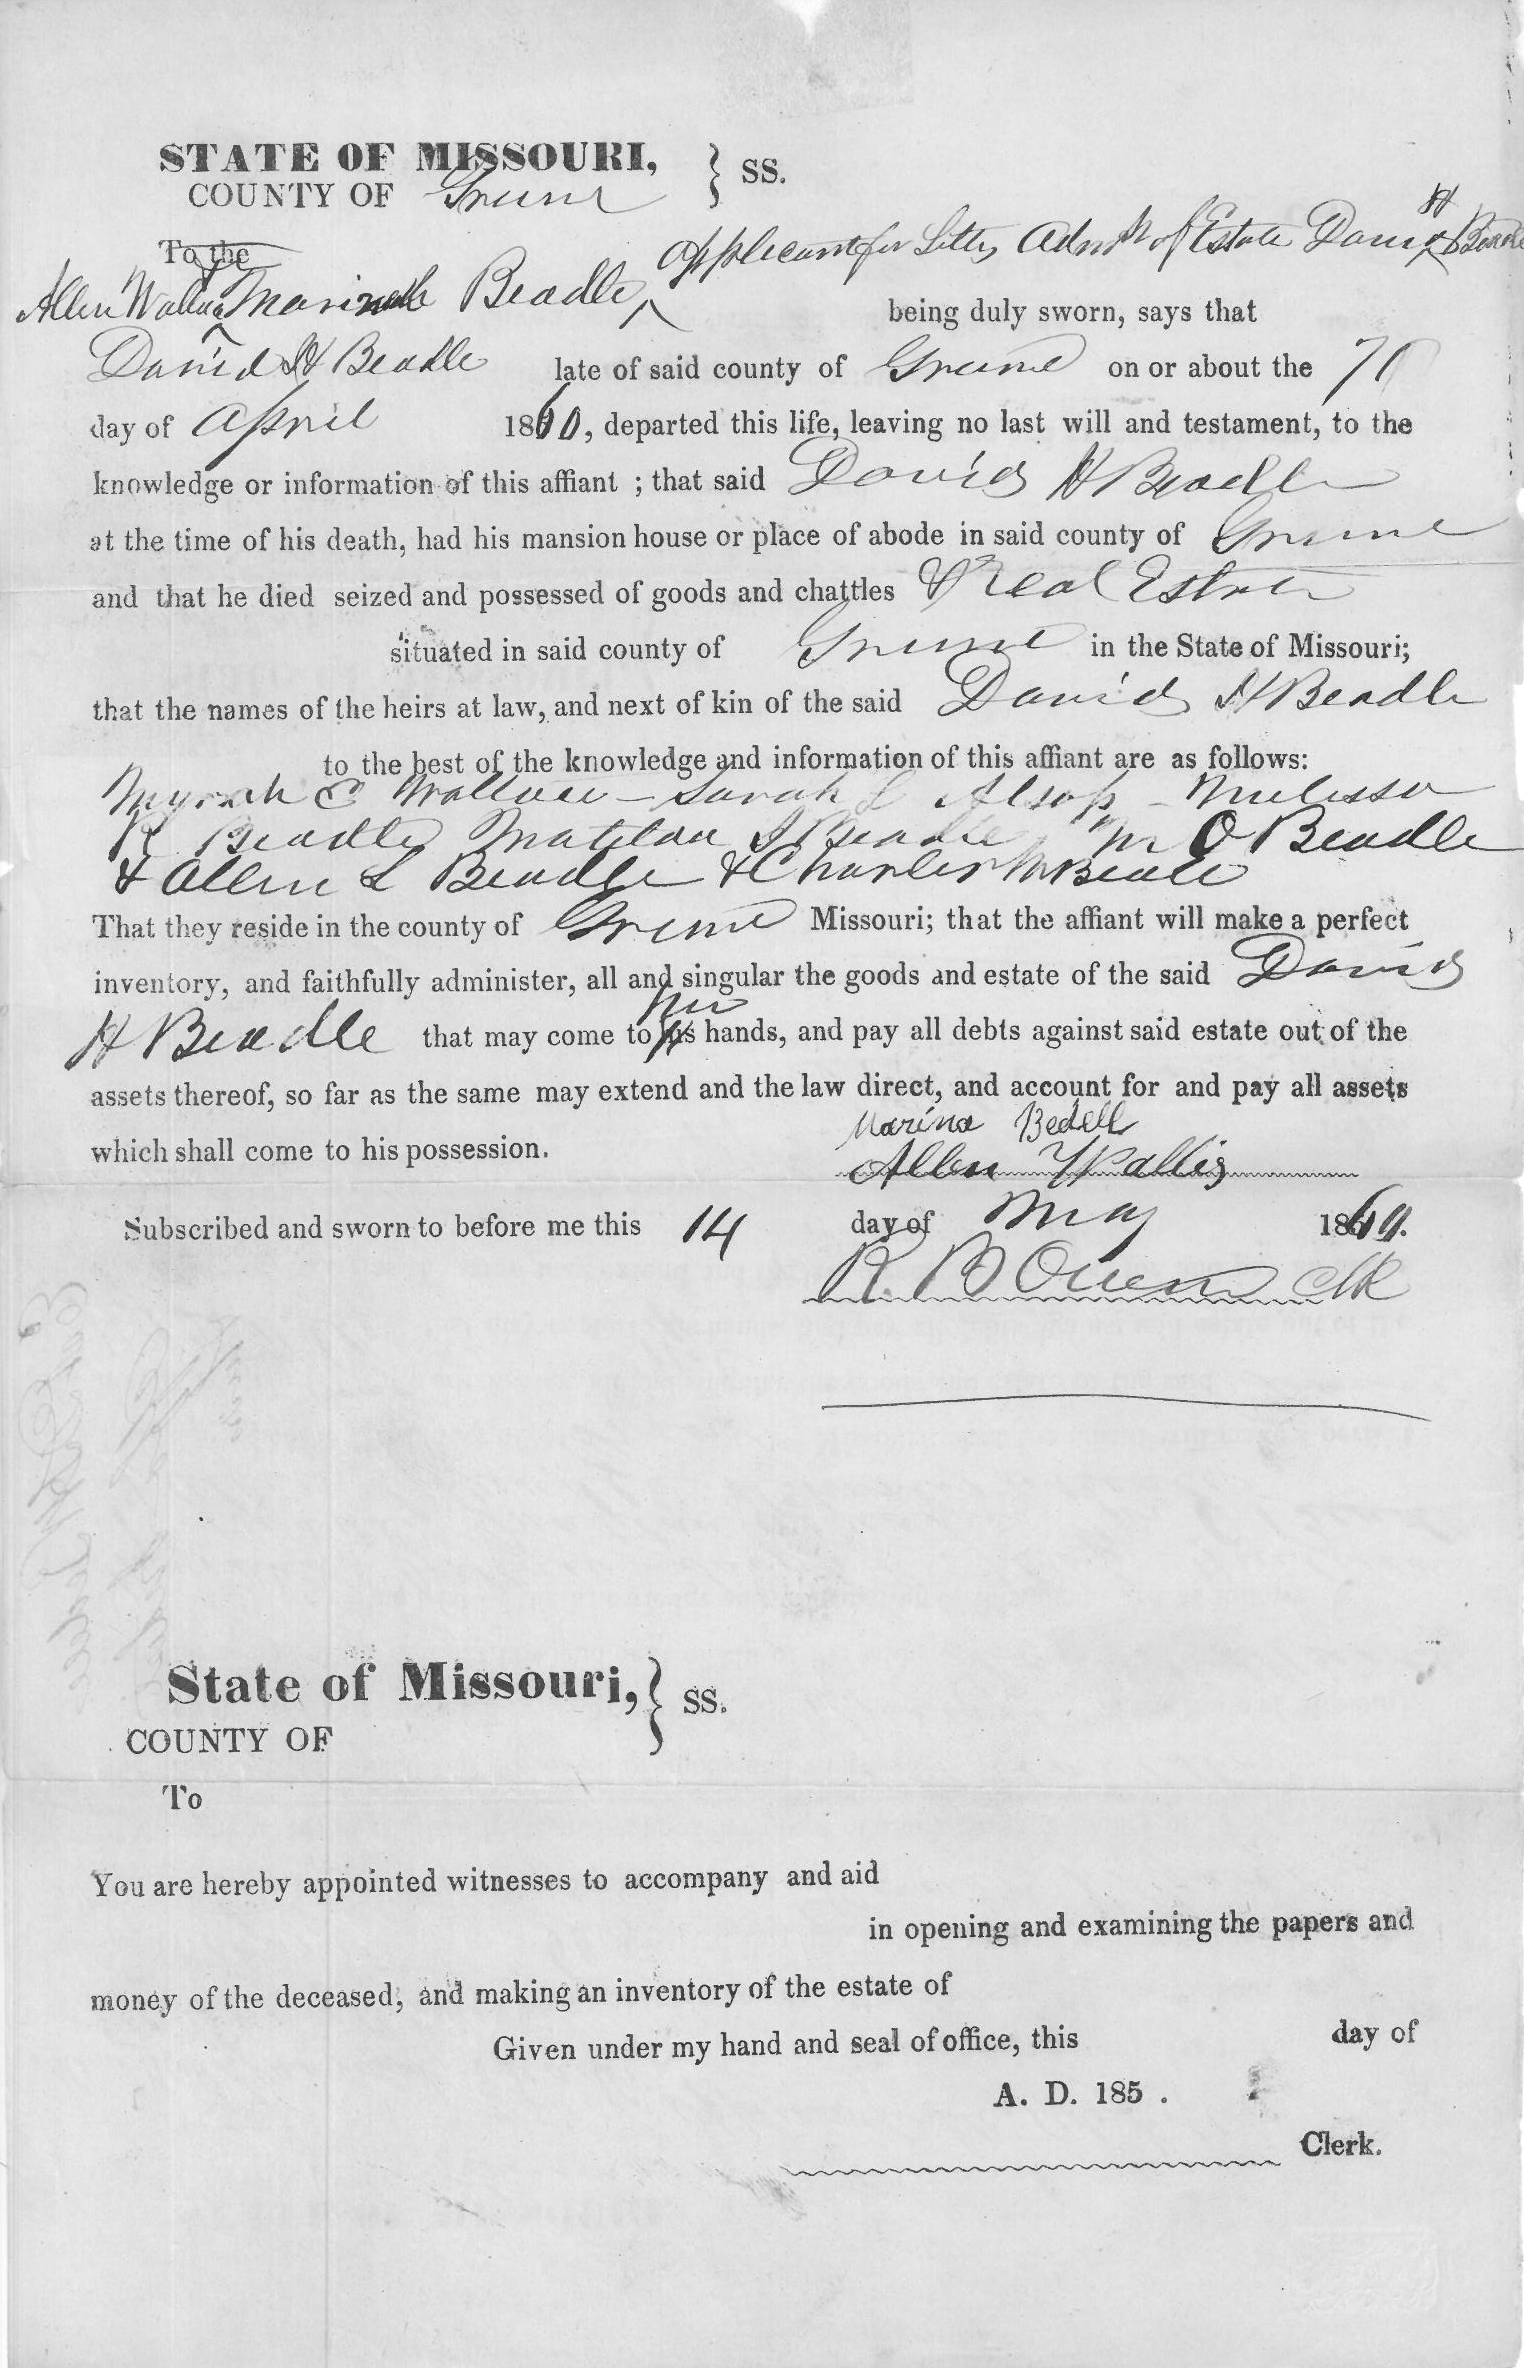 STATE OF MISSOURI, } SS.
COUNTY OF Greene
To the
Applicant for Letters Admr of Estate David H Beadle
Allen Wallace & Marina Beadle,
being duly sworn, says that
David H Beadle late of said county of Greene on or about the
day of April 1860, departed this life, leaving no last will and testament, to the
knowledge or information of this affiant ; that said David H Beadle
at the time of his death, had his mansion house or place of abode in said county of Greene
and that he died seized and possessed of goods and chattles & Real Estate
situated in said county of Greene in the State of Missouri;
that the names of the heirs at law, and next of kin of the said David H Beadle
to the best of the knowledge and information of this affiant are as follows:
Myrah E Wallace – Sarah L Alsop – Melissa
R Beadle Matilda J Beadle M O Beadle
& Allen L Beadle & Charles M Beadle
That they reside in the county of Greene Missouri; that the affiant will make a perfect
inventory, and faithfully administer, all and singular the goods and estate of the said David
H Beadle that may come to hands, and pay all debts against said estate out of the
assets thereof, so far as the same may extend and the law direct, and account for and pay all assets
Marina Bedell
which shall come to his possession.
Allen Wallis
Subscribed and sworn to before me this 14 day of May 1860.
R. B Owen Clk
State of Missouri, } SS.
COUNTY OF
To
You are hereby appointed witnesses to accompany and aid
in opening and examining the papers and
money of the deceased, and making an inventory of the estate of
Given under my hand and seal of office, this day of
A. D. 185 .
Clerk.